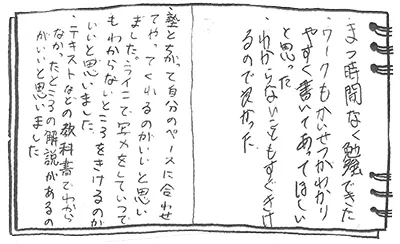 ・まつ時間なく勉強できた
・ワークもかいせつがわかり
やすく書いてあってほしい
と思った
・わからないこともすぐきけ
るので良かった
・塾とちがって自分のペースに合わせ
てやってくれるのがいいと思い
ました。ラインで写メをしていつで
もわからないところをきけるのが
いいと思いました。
・テキストなどの教科書でわから
なかったところの解説があるの
がいいと思いました